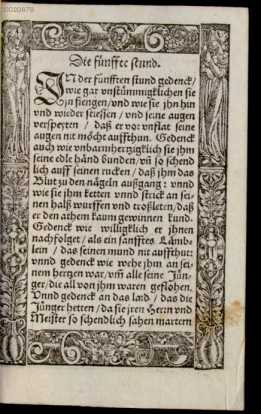 Die fünffte stund.
IN der fünfften stund gedenck/
wie gar vnstümmigklichen sie
jn fiengen/ vnd wie sie jhn hin
vnd wieder stiessen / vnd seine augen
verspeyten / daß er vor vnflat seine
augen nit möcht auffthun. Gedenck
auch wie vnbarmhertzigklich sie jhm
seine edle händ bunden/ vñ so schend
lich auff seinen rucken/ daß jhm das
Blut zu den nägeln außgang: vnnd
wie sie jhm ketten vnnd strick an sei-
nen halß wurffen vnd troßleten/ daß
er den athem kaum gewinnen kund.
Gedenck wie willigklich er jhnen
nachfolget / als ein sanfftes Lämb-
lein / das seinen mund nit auffthut:
vnnd gedenck wie wehe jhm an sei-
nem hertzen war/ vm̃ alle seine Jün-
ger/ die all von jhm waren geflohen.
Vnnd gedenck an das laid / das die
Jünger hetten / da sie jren Herrn vnd
Meister so schendlich sahen martern